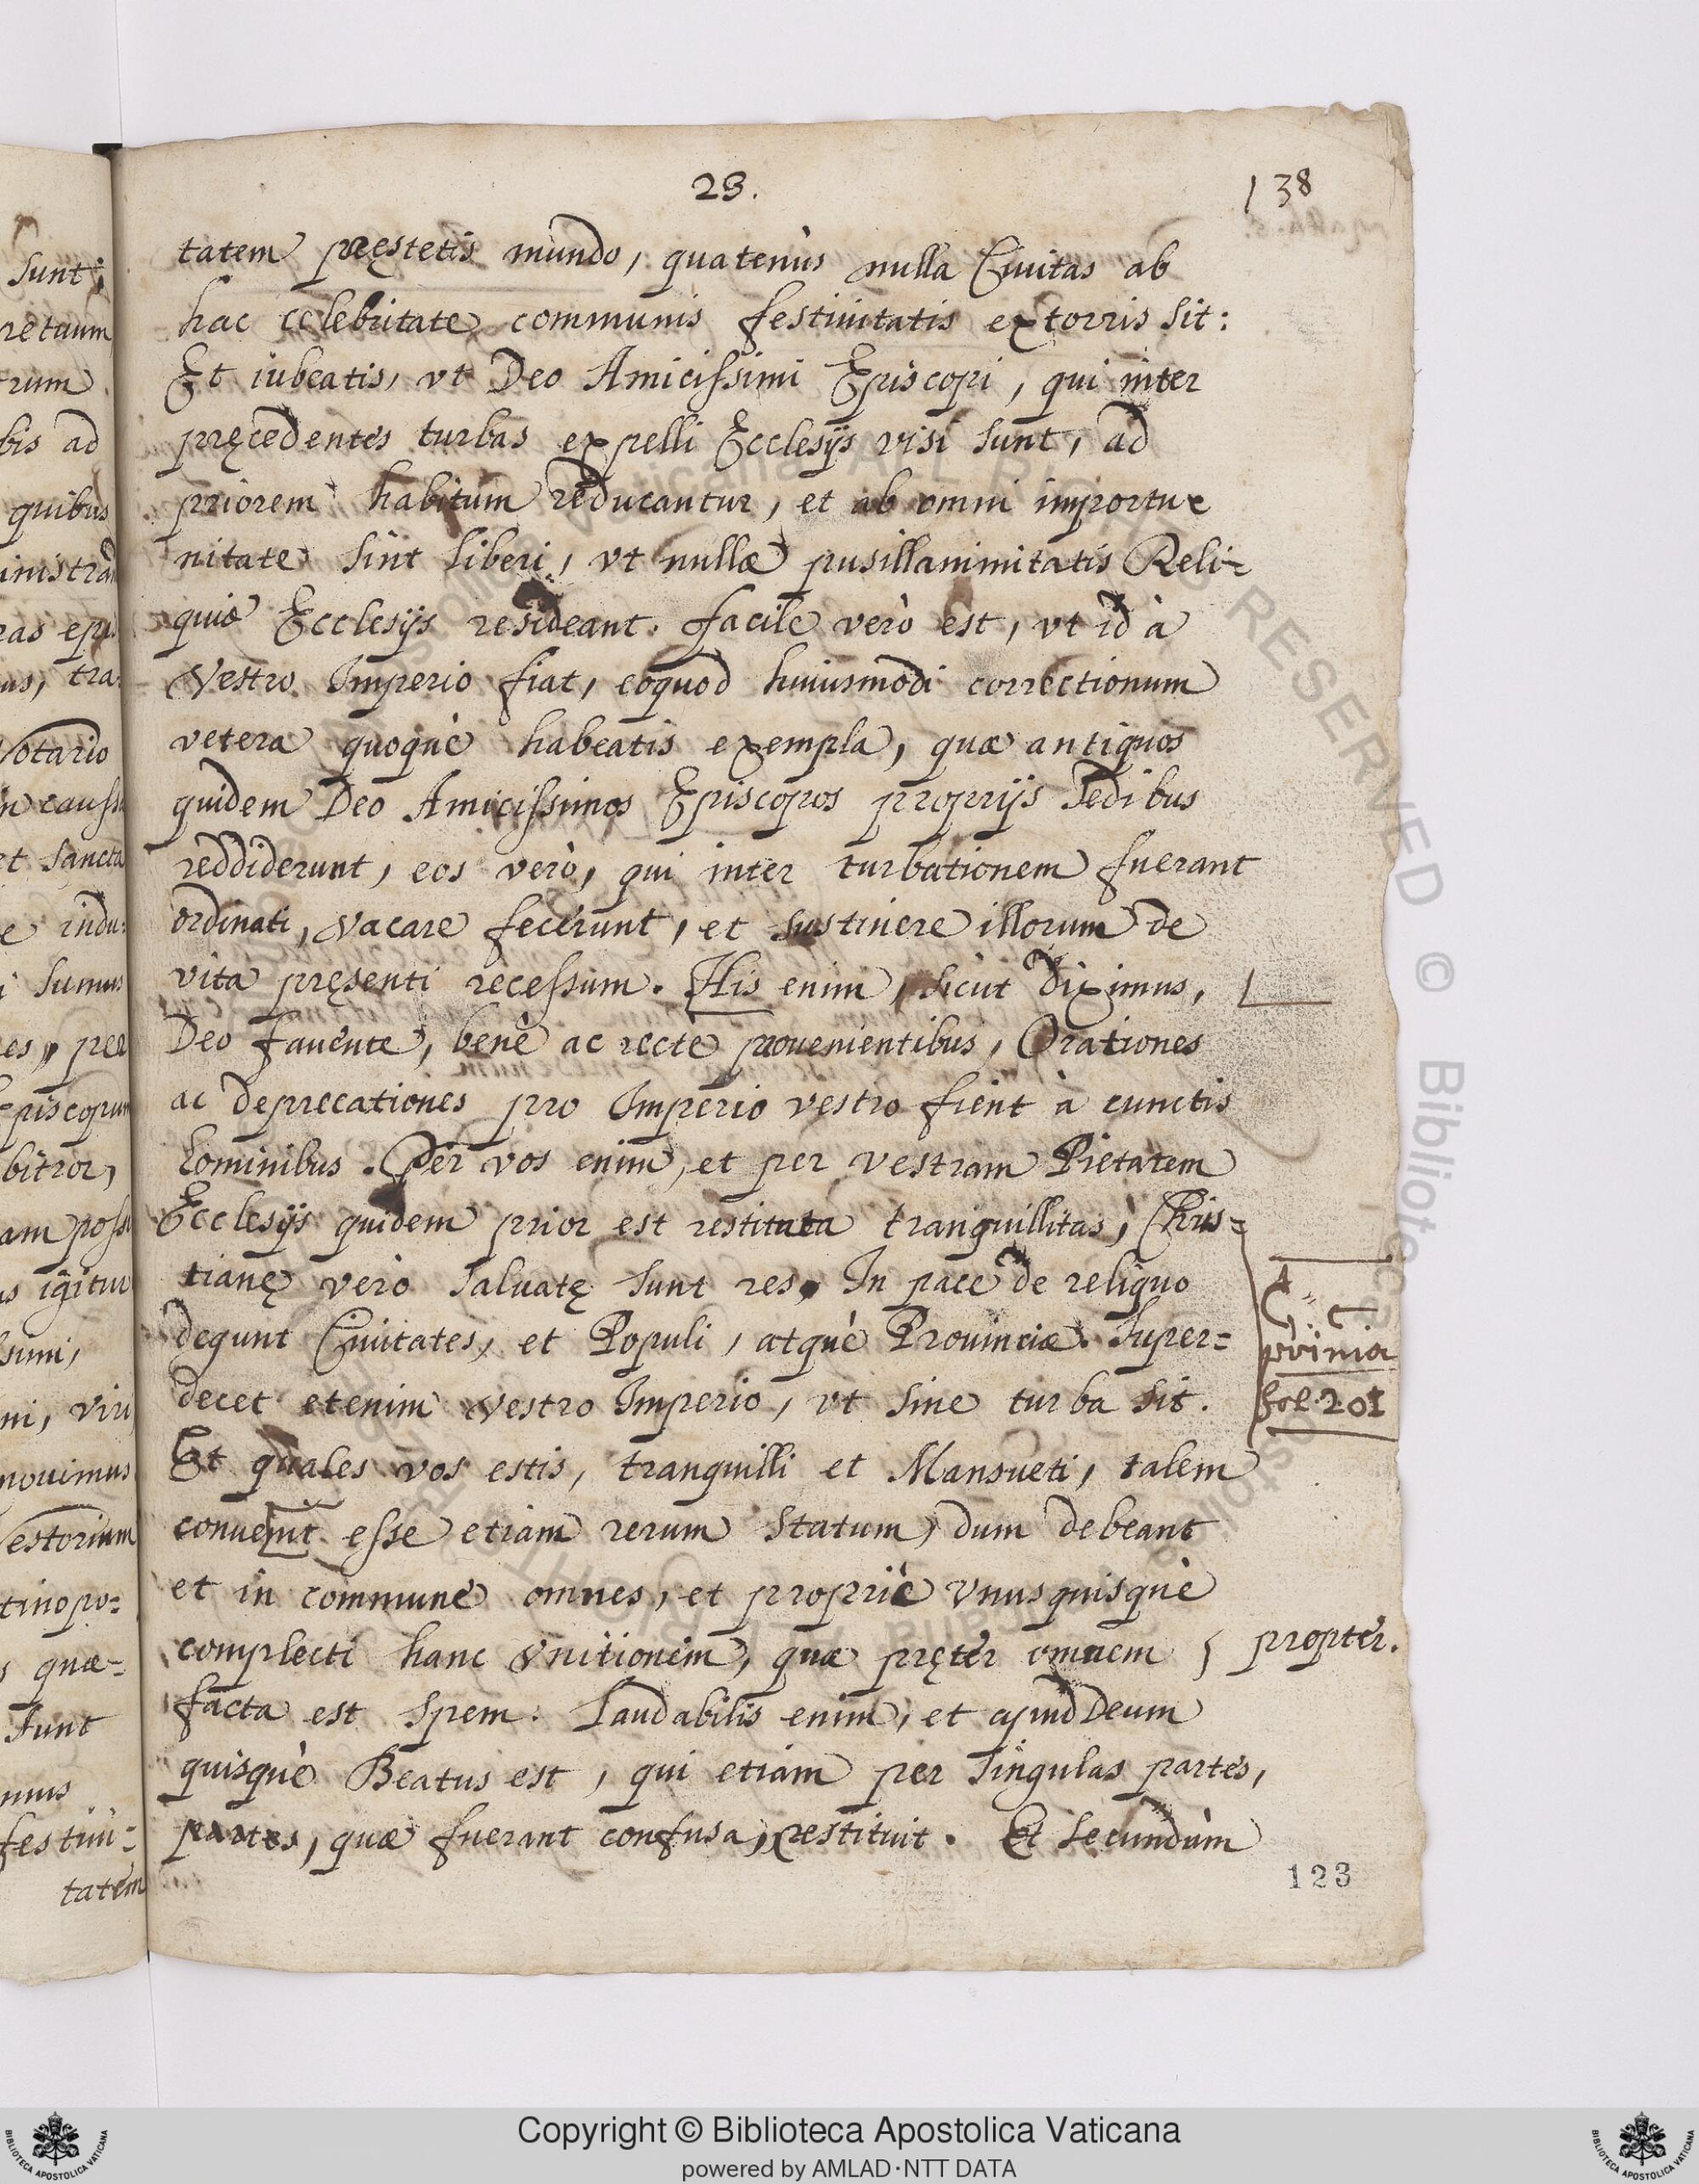 23.
138
tatem pręstetis mundo, quatenùs nulla Ciuitas ab
hac celebritate communis festiuitatis extorris sit:
Et iubeatis, vt Deo Amicissimi Episcopi, qui inter
pręcedentes turbas expelli Ecclesijs visi sunt, ad
priorem habitum reducantur, et ab omni importu-
nitate sint liberi, vt nullæ pusillanimitatis Reli=
quiæ Ecclesijs resideant. facile verò est, vt id à
Vestro Imperio fiat, eoquod huiusmodi correctionum
vetera quoquè habeatis exempla, quæ antiquos
quidem Deo Amicissimos Episcopos proprijs Sedibus
reddiderunt, eos verò, qui inter turbationem fuerant
ordinati, vacare fecerunt, et sustinere illorum de
vita pręsenti recessum. His enim, sicut diximus,
Deo fauente, benè ac rectè prouenientibus, Orationes
ac deprecationes pro Imperio vestro fient à cunctis
hominibus. Per vos enim, et per vestram Pietatem
Ecclesijs quidem prior est restituta tranquillitas, Chris=
tianę verò saluatę sunt res, In pace de reliquo
degunt Ciuitates, et Populi, atquè Prouinciæ. Super=
decet etenim vestro Imperio, vt sine turba sit.
Et quales vos estis, tranquilli et Mansueti, talem
conuenit esse etiam rerum statum, dum debeant
et in commune omnes, et propriè vnusquisquè
complecti hanc vnitionem, quæ pręter omnem
facta est spem. Laudabilis enim, et apud Deum
quisquè Beatus est, qui etiam per singulas partes,
partes, quæ fuerant confusa, restituit. Et secundùm
propter.
fol. 201
123
sunt;
rum
bis ad
quibus
Notario
et sancta
sumus
bitror,
igitur
nouimus
tinopo=
quæ=
sunt
festiui=
tatem
Copyright © Biblioteca Apostolica Vaticana
powered by AMLAD·NTT DATA